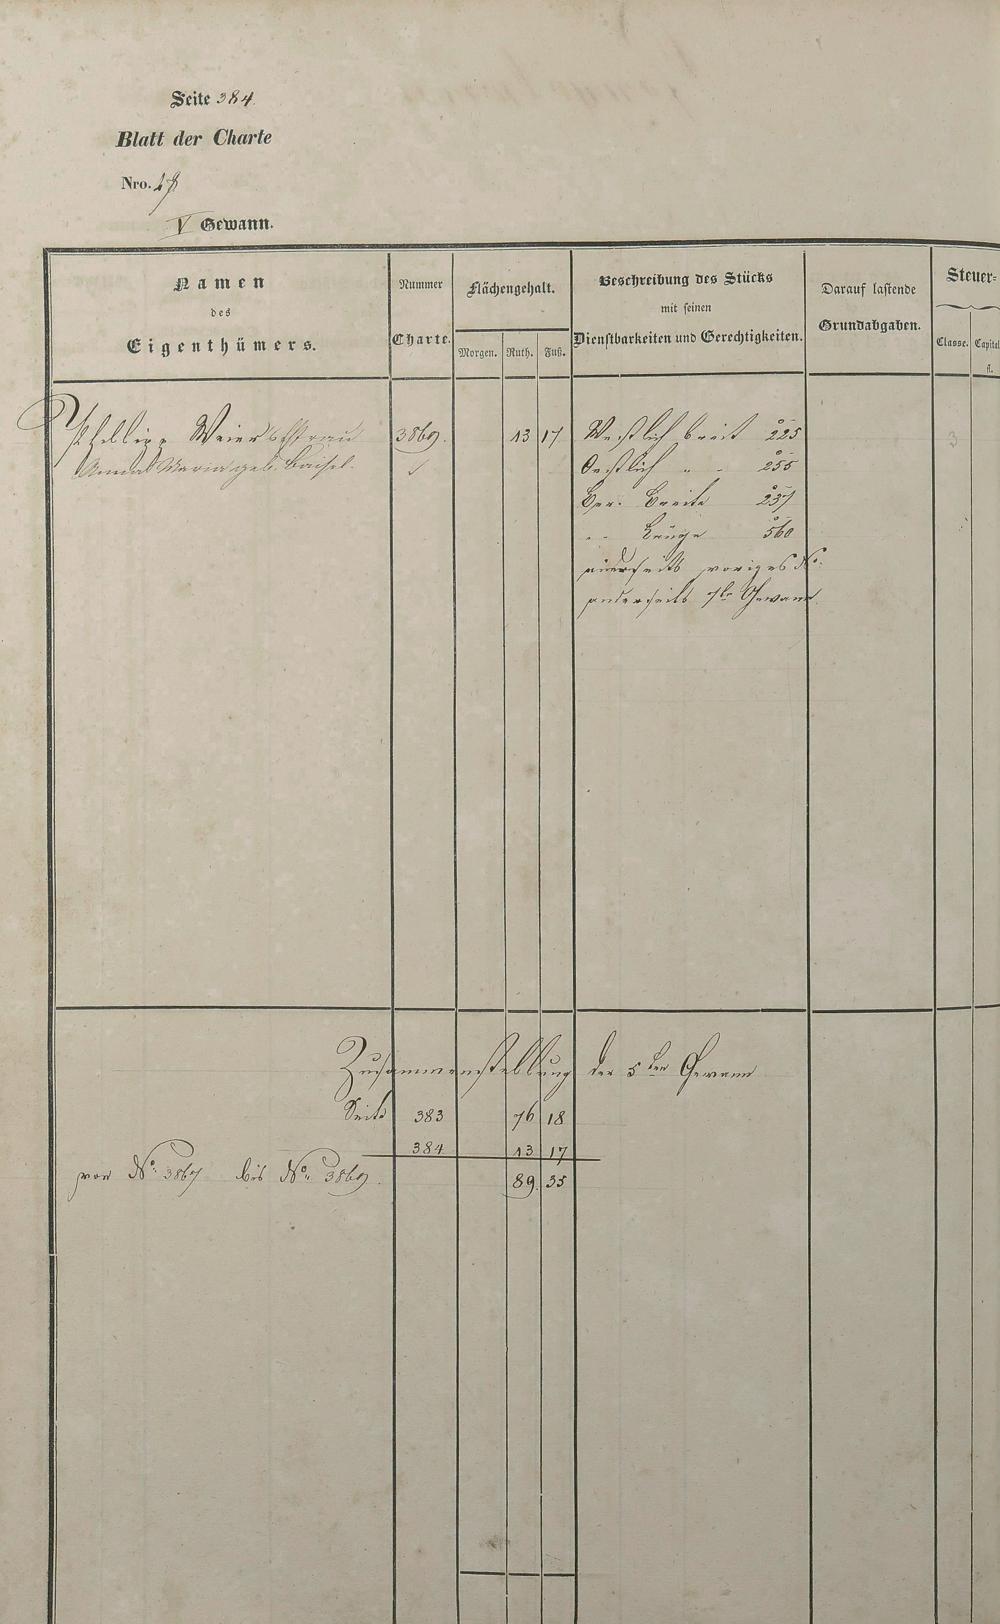 Seite 384.
Blatt der Charte
Nro. 28
V Gewann.
Namen
des
Eigenthümers.
Nummer
Charte.
Flächengehalt.
Morgen. Ruth. Fuß.
Beschreibung des Stücks
mit seinen
Dienstbarkeiten und Gerechtigkeiten.
Darauf lastende
Grundabgaben.
Steuer-
Classe. Capital
fl.
Phillipp Weiers Ehefrau 3869. 13 17 Westlich breit 225 3
Anna Maria geb. Oestlich „ - 255
Ger. Breite 237
„ Länge 560
einerseits voriges No.
anderseits 7te Gewann.
Zusammenstellung der 5ten Gewann
Seite 383 76 18
384 13 17
von No. 3867 bis No. 3869. 89. 35